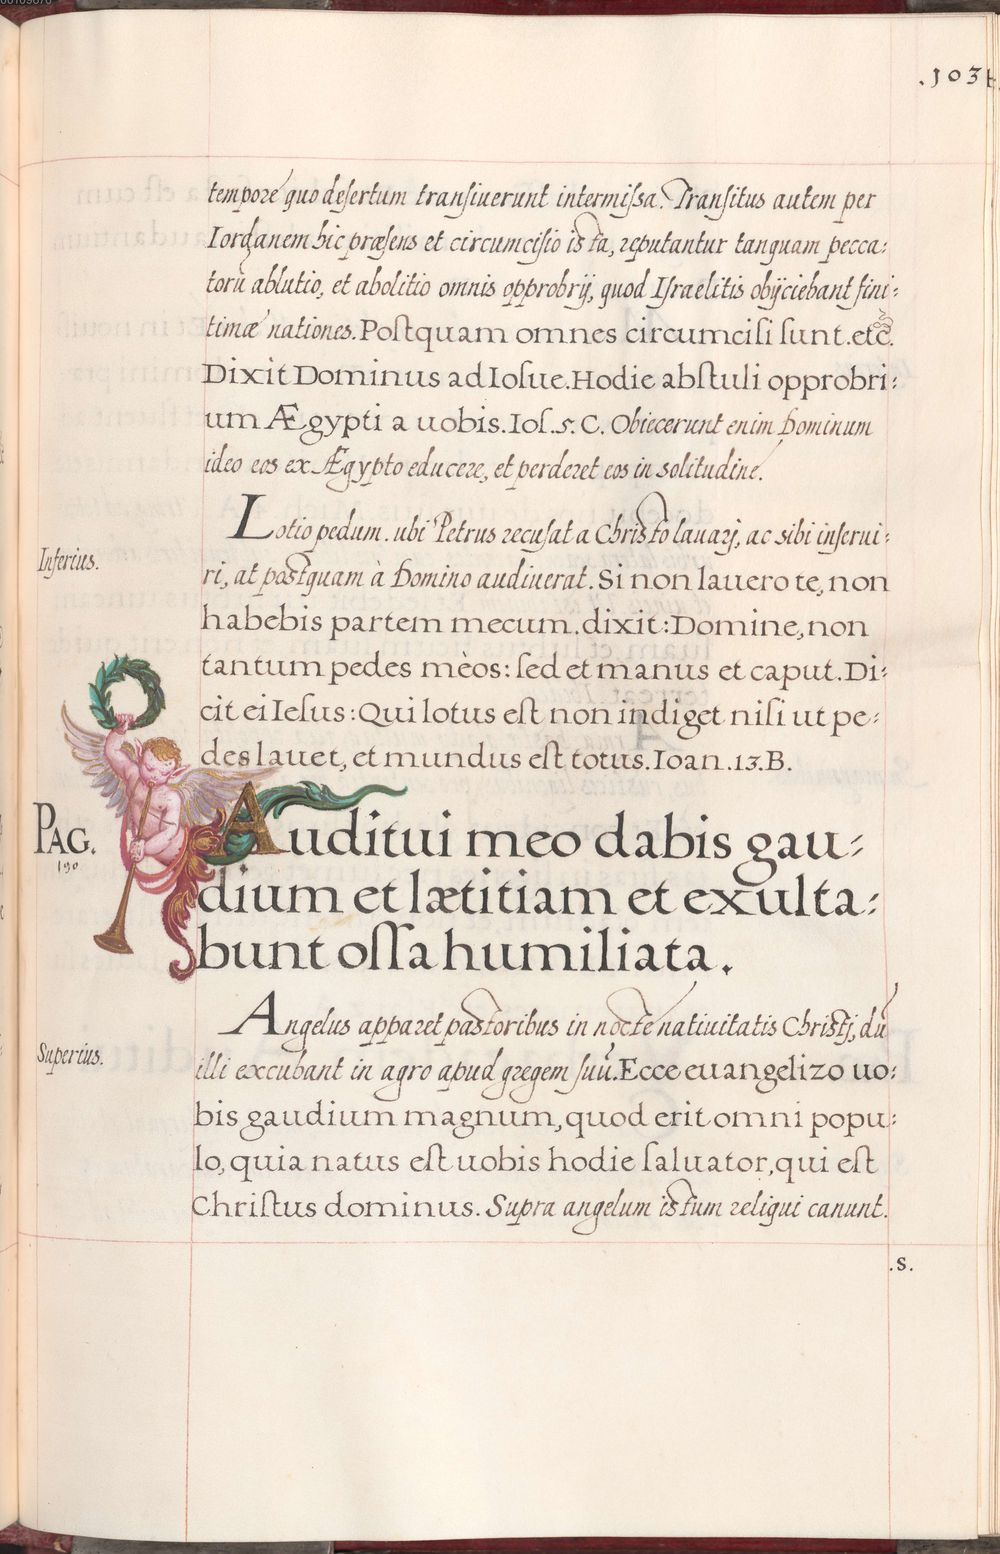 .103
tempore quo desertum transiuerunt intermissa. Transitus autem per
Iordanem hic præsens et circumcisio ista, reputantur tanquam pecca:
torū ablutio, et abolitio omnis opprobrij, quod Israelitis obijciebant fini:
timæ nationes. Postquam omnes circumcisi sunt. etc.
Dixit Dominus ad Iosue. Hodie abstuli opprobri:
um Ægypti a uobis. Ios. 5. C. Obiecerunt enim Dominum
ideo eos ex Ægypto educere, et perderet eos in solitudine.
Lotio pedum. ubi Petrus recusat a Christo lauarj, ac sibi inserui:
Inferius.
ri, at postquam à Domino audiuerat. Si non lauero te, non
habebis partem mecum. dixit: Domine, non
tantum pedes mèos: sed et manus et caput. Di:
cit ei Iesus: Qui lotus est non indiget nisi ut pe:
des lauet, et mundus est totus. Ioan. 13. B.
PAG.
190
Auditui meo dabis gau:
dium et lætitiam et exulta:
bunt ossa humiliata.
Angelus apparet pastoribus in nocte natiuitatis Christj, dū
Superius.
illi excubant in agro apud gregem suū. Ecce euangelizo uo:
bis gaudium magnum, quod erit omni popu:
lo, quia natus est uobis hodie saluator, qui est
Christus dominus. Supra angelum istum reliqui canunt.
.S.